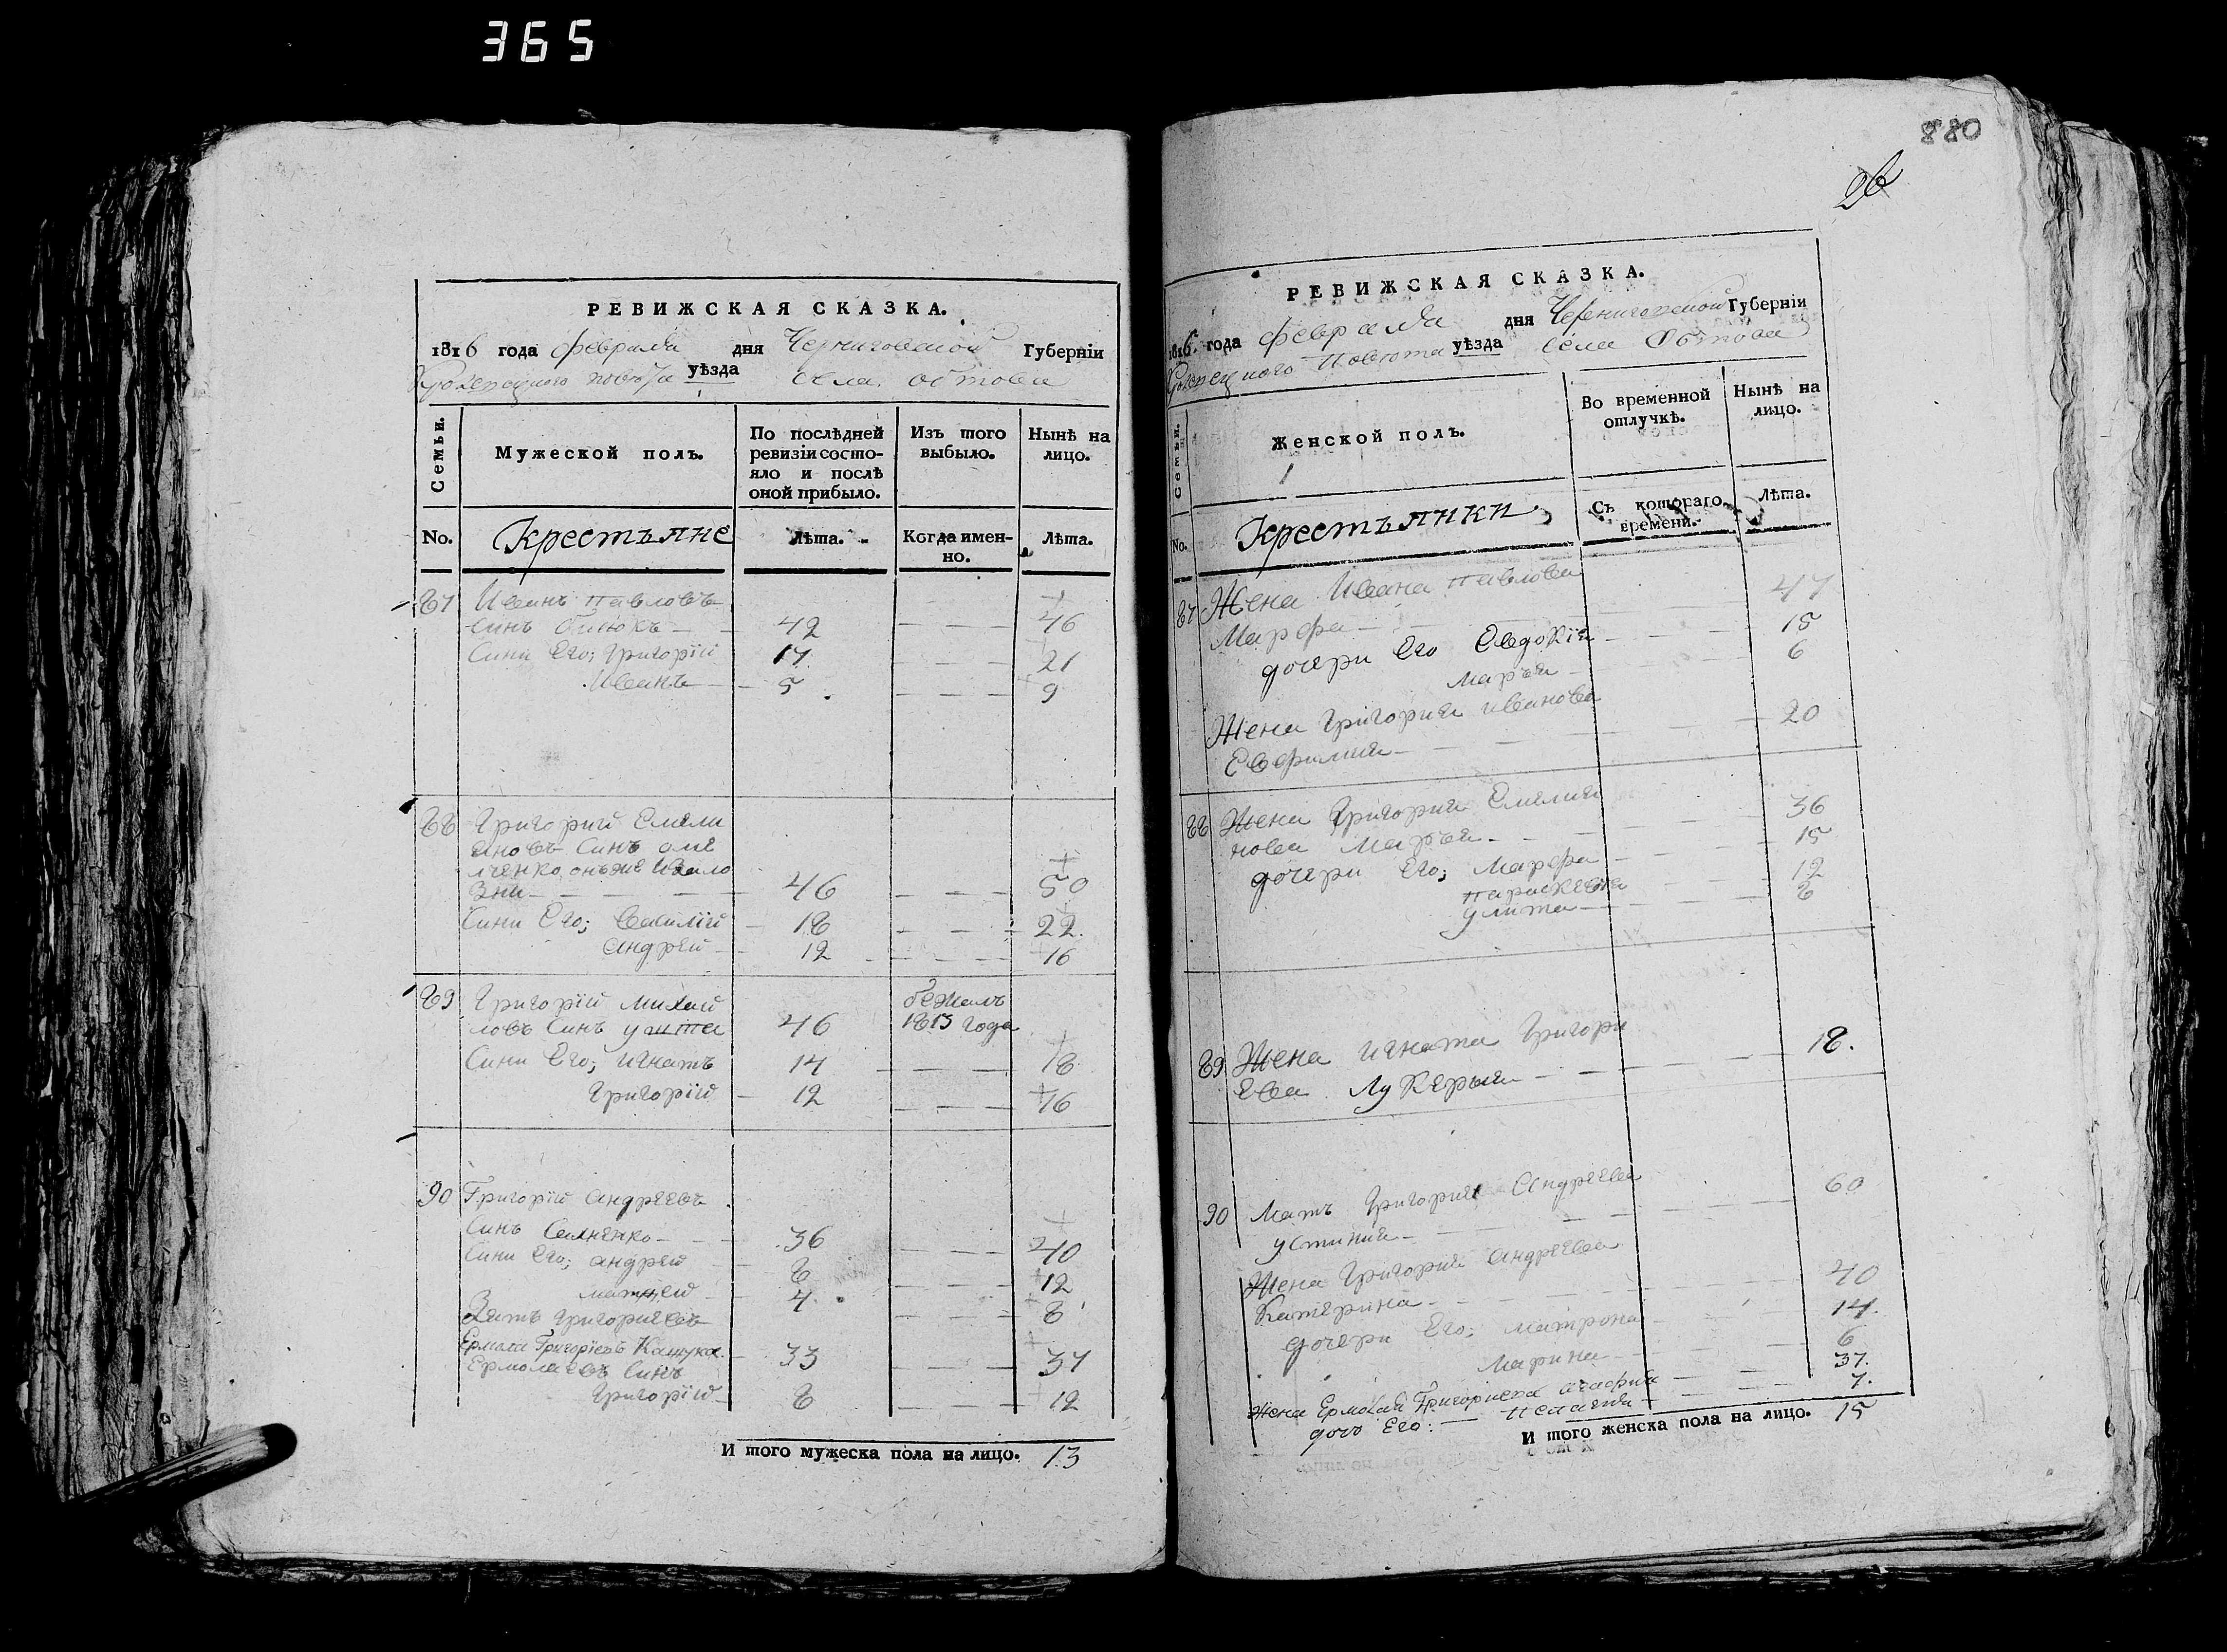 365
РЕВИЖСКАЯ СКАЗКА.
1816 года февраля дня Черниговской Губерніи
Кролевецкого повета уѣзда села обтова
Семьи.
Мужеской полъ.
По послѣдней ревизіи состояло и послѣ оной прибыло.
Изъ того выбыло.
Нынѣ на лицо.
No. Крестъяне Лѣта. Когда именно. Лѣта.
87 Иванъ павловъ
синъ билокъ 42 46
Сини Его; григорій 17 21
Иванъ 5 9
88 григорий Емели
яновъ Синъ оме
лченко онъже
46 50
Сини Его; василій 18 22.
андрей 12 16
89 григорій михай бежалъ
ловъ Синъ 46 1813 года
Сини Его; игнатъ 14 18
григорій 12 16
90 Григорій андреевъ
Синъ 36 40
Сини Его; андрей 8 12
матвей 4 8
Зять григориевъ
Ермола Григоріевъ Кашука. 33 37
Ермолаевъ Синъ
григорій 8 12
И того мужеска пола на лицо. 13
880
РЕВИЖСКАЯ СКАЗКА.
1816. года февраля дня Черниговской Губерніи
Кролевецкого повета уѣзда села Обтова
Семьи.
Женской полъ.
Во временной отлучкѣ.
Нынѣ на лицо.
No. Крестъянки Съ котораго времени. Лѣта.
87 Жена Ивана павлова
Марфа 47
дочери Его Евдокія 15
маръя 6
Жена григория иванова
Евфимия 20
88 Жена григория Емелия
нова маръя 36
дочери Его; марфа 15
параскевия 12
улита 8
89 Жена игната григори
ева лукерья 18.
90 мать григория андреева
устиния 60
Жена григория андреева
катерина 40
дочери Его; матрона 14.
марина 6
Жена Ермолая Григориева агафия 37.
дочь Его: пелагия 7.
И того женска пола на лицо. 15